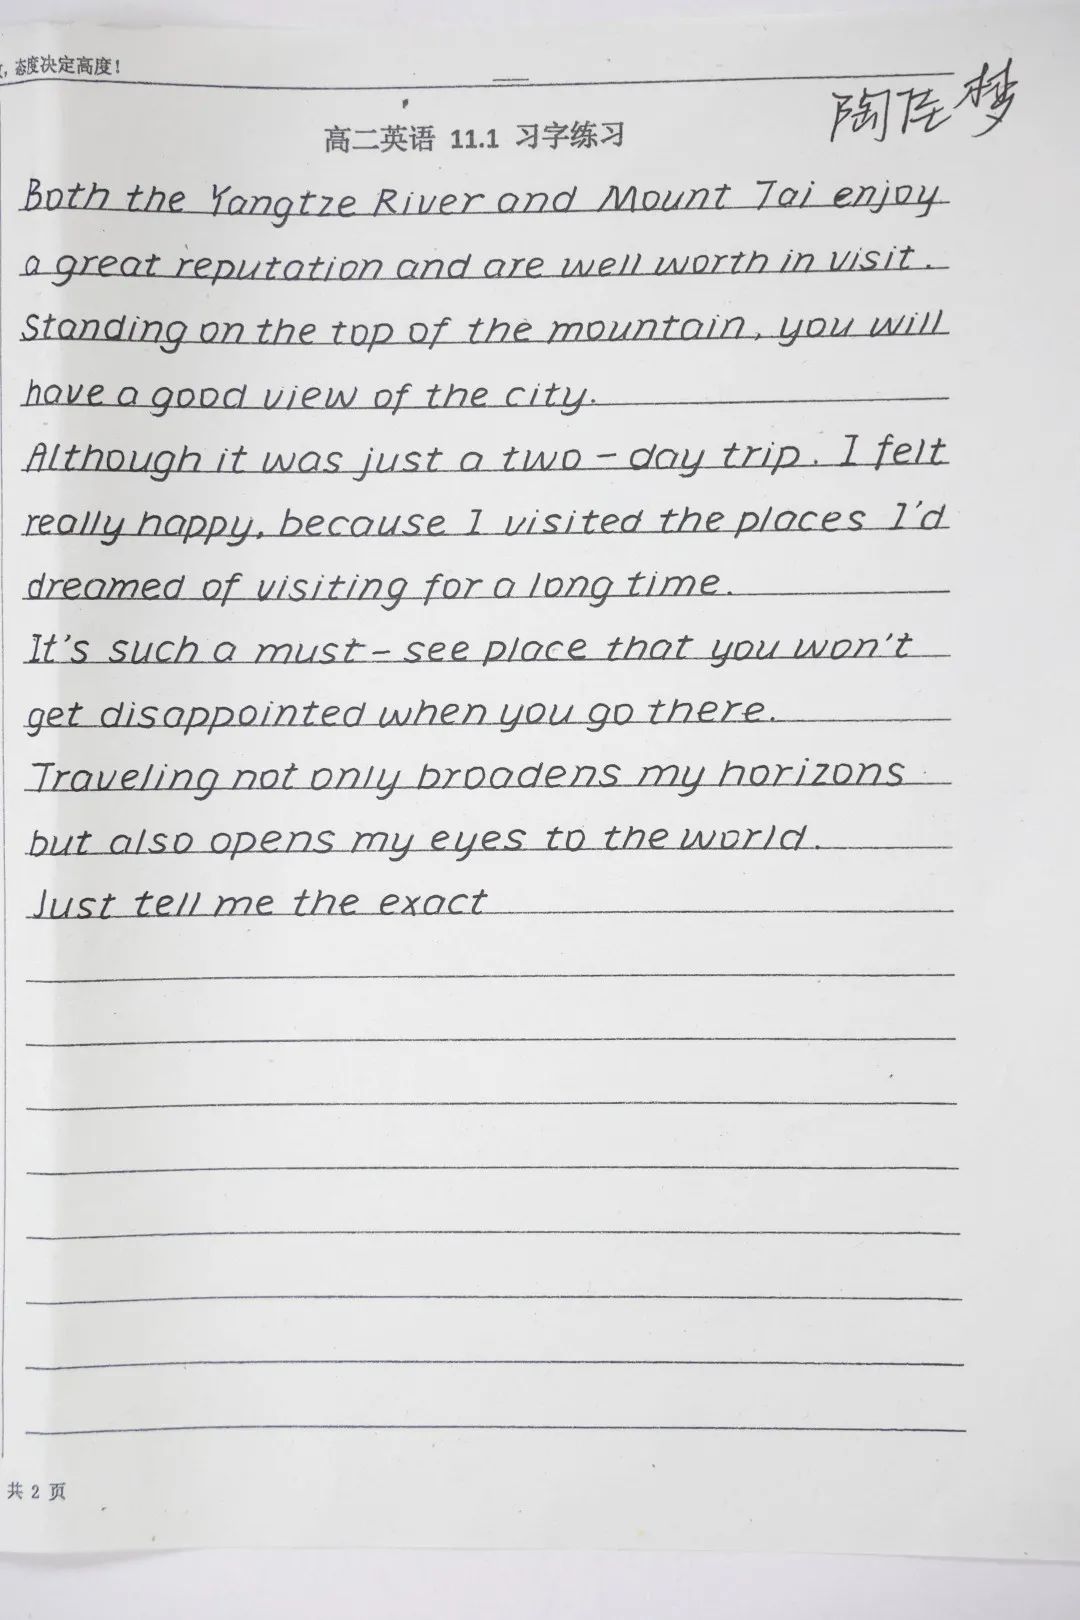 态度决定高度！
高二英语 11.1 习字练习
Both the Yangtze River and Mount Tai enjoy
a great reputation and are well worth in visit.
Standing on the top of the mountain, you will
have a good view of the city.
Although it was just a two-day trip. I felt
really happy, because I visited the places I'd
dreamed of visiting for a long time.
It's such a must-see place that you won't
get disappointed when you go there.
Traveling not only broadens my horizons
but also opens my eyes to the world.
Just tell me the exact
共 2 页